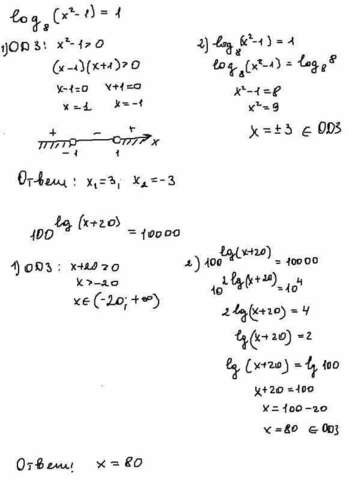 log₈(x²-1) = 1
1) ОДЗ: x²-1>0
(x-1)(x+1)>0
x-1=0 x+1=0
x=1 x=-1
+ - + x
-1 1
2) log₈(x²-1) = 1
log₈(x²-1) = log₈8
x²-1=8
x²=9
x = ±3 ∈ ОДЗ
Ответ: x₁=3; x₂=-3
100^lg(x+20) = 10000
1) ОДЗ: x+20>0
x>-20
x∈(-20; +∞)
2) 100^lg(x+20) = 10000
10^2lg(x+20) = 10⁴
2lg(x+20) = 4
lg(x+20) = 2
lg(x+20) = lg 100
x+20=100
x=100-20
x=80 ∈ ОДЗ
Ответ: x = 80